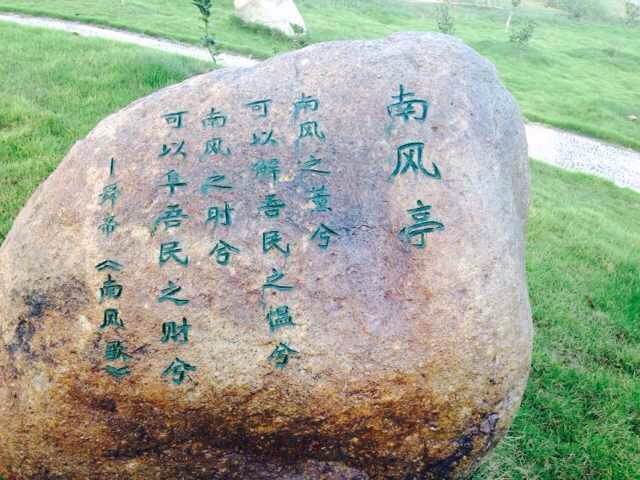 南风亭
南风之薰兮
可以解吾民之愠兮
南风之时兮
可以阜吾民之财兮
—舜帝《南风歌》